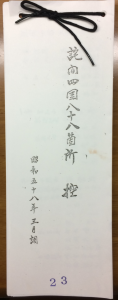 詫間四国八十八箇所 控
昭和五十八年三月調
23